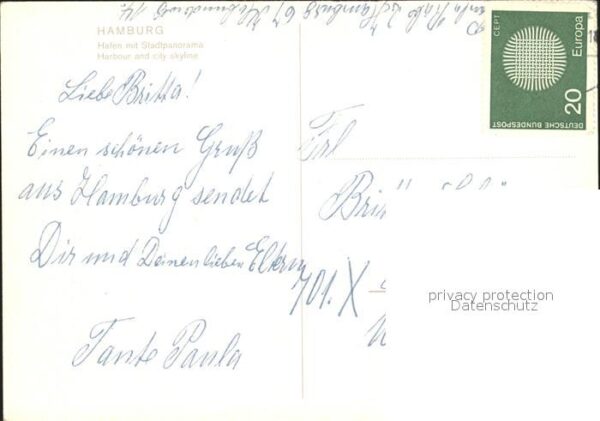 HAMBURG
Hafen mit Stadtpanorama
Harbour and city skyline
Liebe Britta!
Einen schönen Gruß
aus Hamburg sendet
Dir und Deinen lieben Eltern
Tante Paula
Hamburg 67
CEPT
Europa
20
DEUTSCHE BUNDESPOST
Frl
701.X
privacy protection
Datenschutz